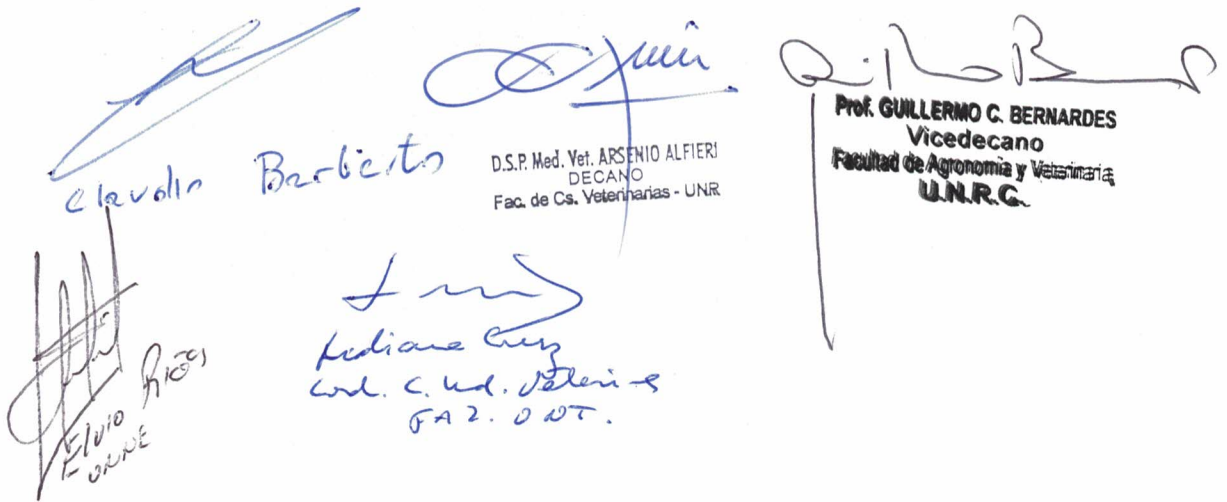 Claudio Barbeito
D.S.P. Med. Vet. ARSENIO ALFIERI
DECANO
Fac. de Cs. Veterinarias - UNR
Prof. GUILLERMO C. BERNARDES
Vicedecano
Facultad de Agronomía y Veterinaria
U.N.R.C.
Elvio Ríos
UNNE
Cruz
FAZ. UNT.